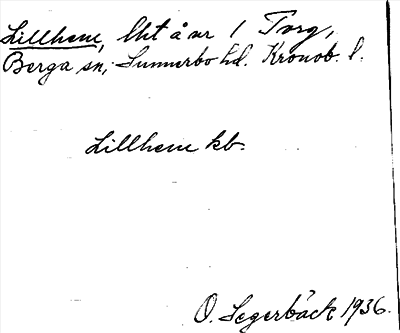 Lillhem, lht å ar 1 Torg,
Berga sn, Sunnerbo hd. Kronob. l.
Lillhem kb.
O. Segerbäck 1936.